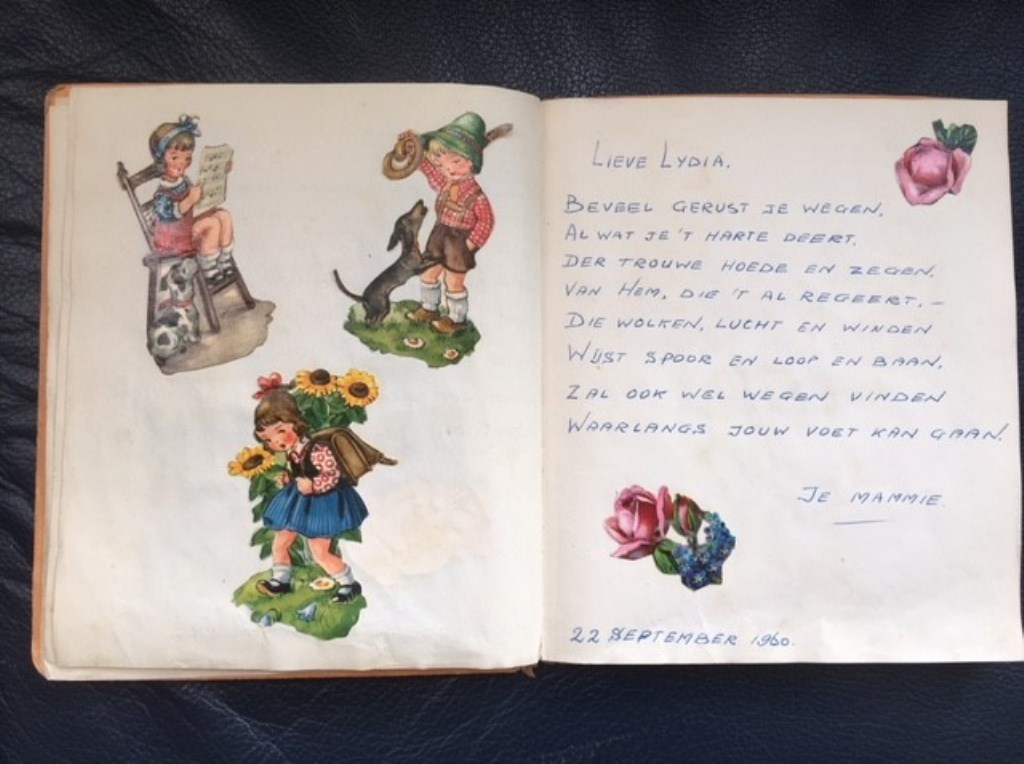 LIEVE LYDIA.
BEVEEL GERUST JE WEGEN,
AL WAT JE 'T HARTE DEERT,
DER TROUWE HOEDE EN ZEGEN,
VAN HEM, DIE 'T AL REGEERT, –
DIE WOLKEN, LUCHT EN WINDEN
WIJST SPOOR EN LOOP EN BAAN,
ZAL OOK WEL WEGEN VINDEN
WAARLANGS JOUW VOET KAN GAAN.
JE MAMMIE.
22 SEPTEMBER 1960.